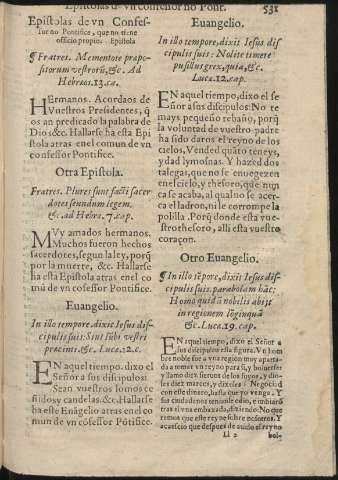 Epistolas de vn Confessor no Pont. 531
Epistolas de vn Confes-
sor no Pontifice, que no tiene
officio propio. Epistola
¶ Fratres. Mementote præpo-
sitorum vestrorũ, &c. Ad
Hebræos.13.ca.
Hermanos. Acordaos de
Vuestros Presidentes, q̃
os an predicado la palabra de
Dios &c. Hallarse ha esta Epi
stola atras en el comun de vn
confessor Pontifice.
Otra Epistola.
Fratres. Plures sunt facti sacer
dotes secundum legem,
&c. ad Hebræ. 7. cap.
MVy amados hermanos.
Muchos fueron hechos
sacerdotes, segun la ley, porq̃
por la muerte, &c. Hallarse
ha esta Epistola atras en el co
mũ de vn confessor Pontifice.
Euangelio.
In illo tempore, dixit Iesus dis-
cipulis suis: Sint lũbi vestri
præcincti. &c. Luca. 12. c.
EN aquel tiempo, dixo el
Señor a sus discipulos:
Sean vuestros lomos ce
ñidos, y candelas. &c. Hallarse
ha este Euãgelio atras en el co
mun de vn cõfessor Põtifice.
Euangelio.
In illo tempore, dixit Iesus dis
cipulis suis: Nolite timere
pusillus grex, quia, &c.
Lucæ.12.cap.
EN aquel tiempo, dixo el se
ñor a sus discipulos: No te
mays pequeño rebaño, porq̃
la voluntad de vuestro padre
ha sido daros el reyno de los
cielos, Vended quãto teneys,
y dad lymosnas. Y hazed dos
talegas, que no se enuegezen
en el cielo, y thesoro, que nun
ca se acaba, al qual no se acer-
ca el ladron, ni le corrompe la
polilla. Porq̃ donde esta vue-
stro thesoro, alli esta vuestro
coraçon.
Otro Euangelio.
¶ In illo tẽpore, dixit Iesus dis-
cipulis suis. parabolam hãc:
Homo quidã nobilis abijt
in regionem lõginquã
&c. Lucæ. 19. cap.
EN aquel tiempo, dixo el Señor a
sus discipulos esta figura. Vn hom
bre noble fue a vna region muy aparta-
da a tomar vn reyno para si, y boluerse:
y llamo diez sieruos de los suyos, y dio-
les diez marcos, y dixoles: Negociad
con este dinero, hasta que yo venga. Y
sus ciudadanos tenianle odio, e embiarõ
tras el vna embaxada, diziendo: No que
remos que este reyne sobre nosotros. Y
acaescio que despues de auido el reyno
Ll 2 bol-